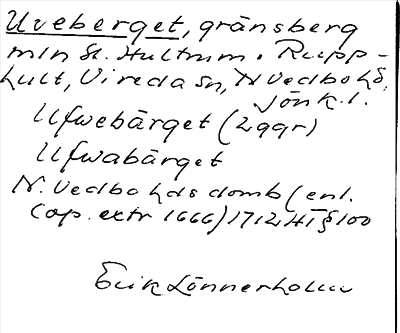 Uveberget, gränsberg
mln St. Hultrum o. Rupp-
hult, Vireda sn, N Vedbo hd,
Jönk. l.
Ufwebärget (2 ggr)
Ufwabärget
N. Vedbo hds domb (enl.
Cop. extr 1666) 1712 HT § 100
Erik Lönnerholm